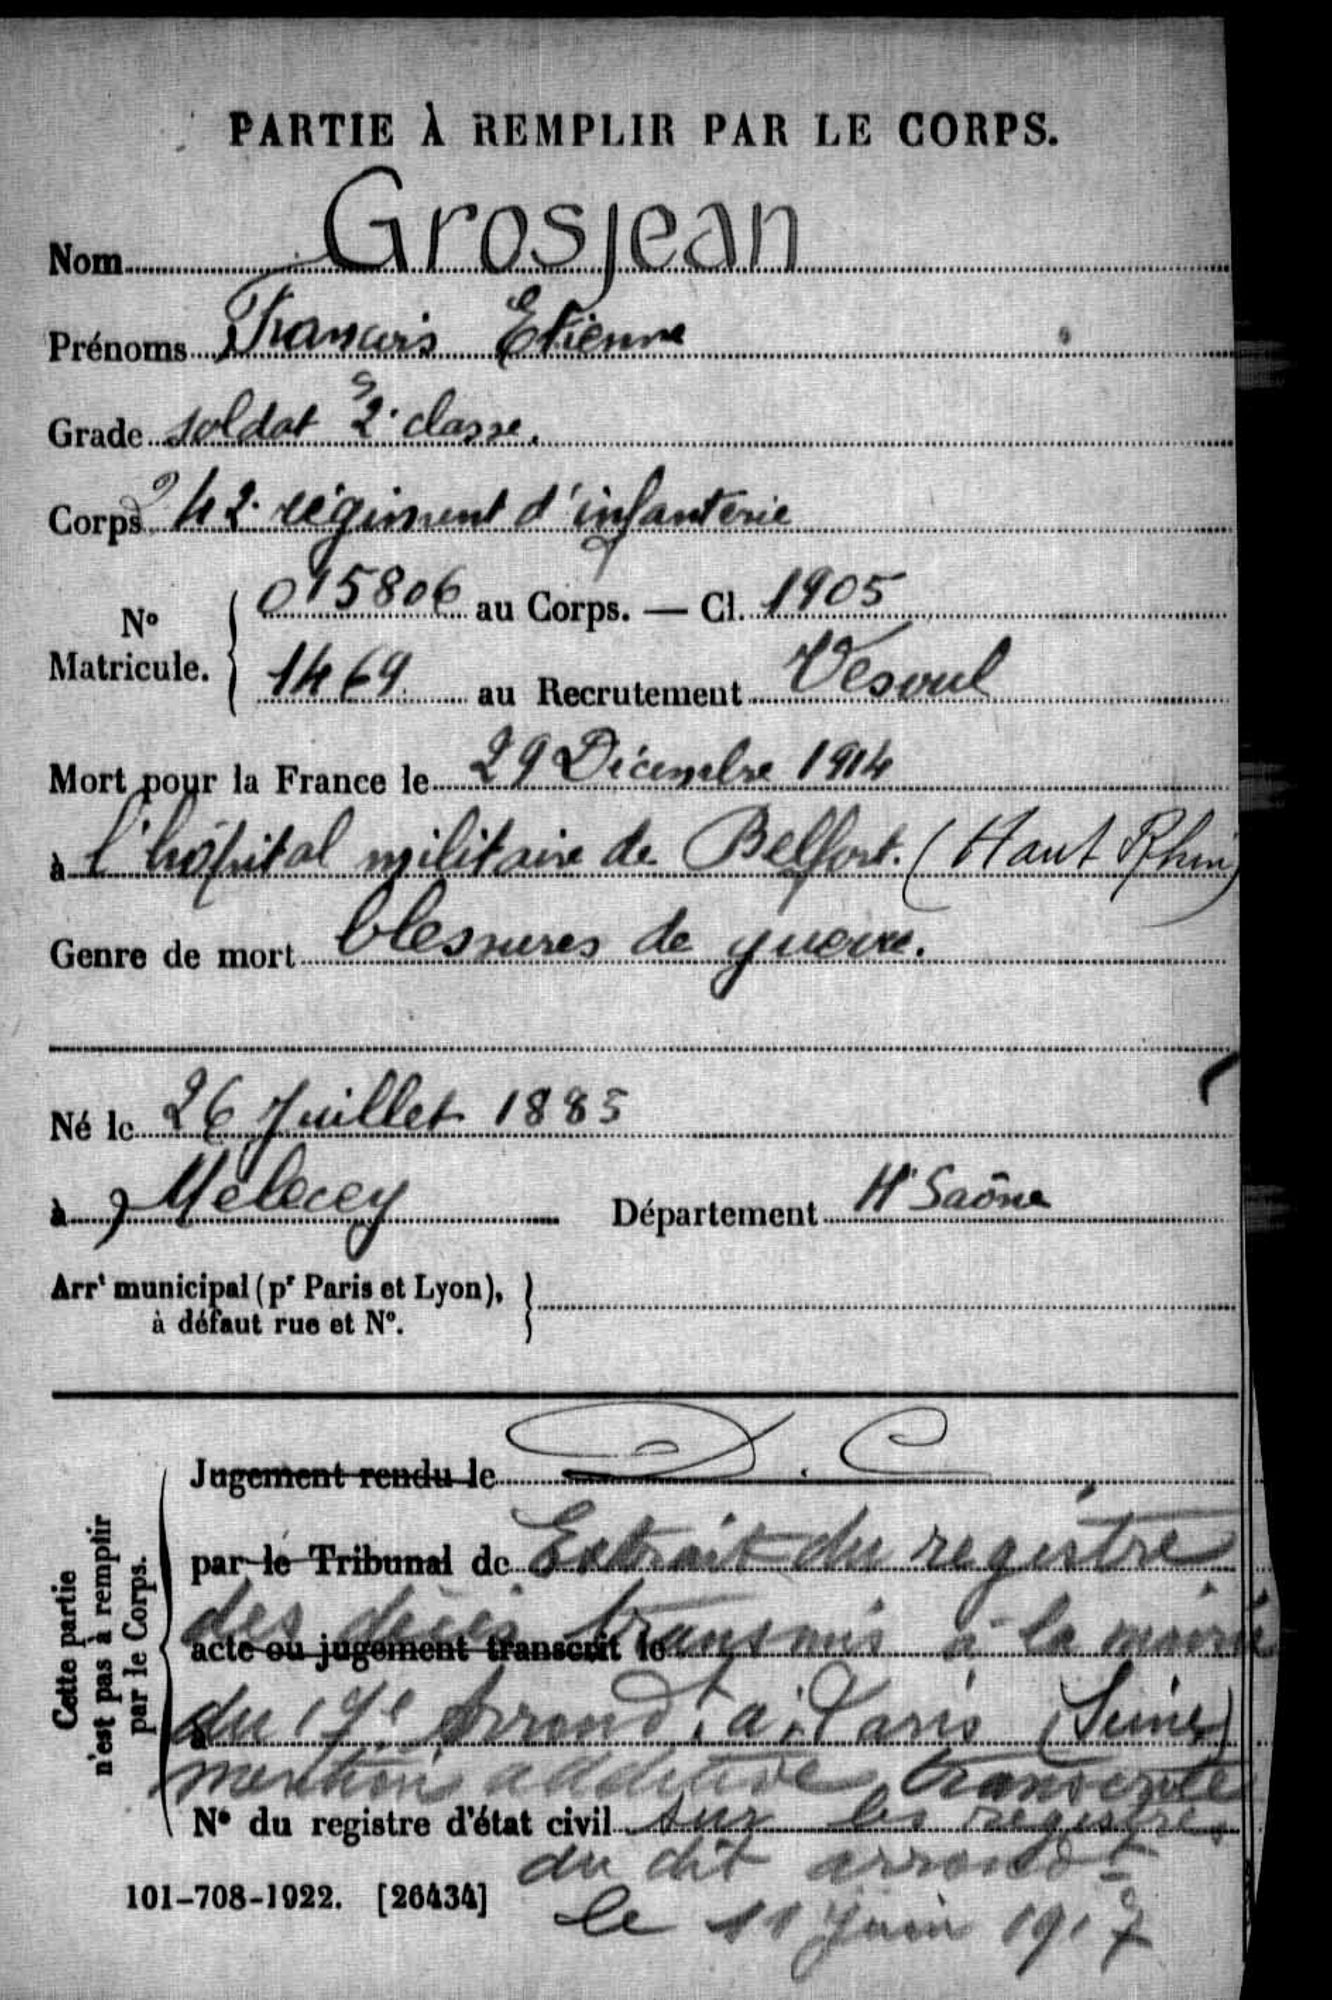 PARTIE À REMPLIR PAR LE CORPS.
Nom Grosjean
Prénoms François Etienne
Grade soldat 2e classe.
Corps 242e régiment d'infanterie
No Matricule. { 015806 au Corps. — Cl. 1905
1469 au Recrutement Vesoul
Mort pour la France le 29 Décembre 1914
à l'hôpital militaire de Belfort. (Haut Rhin)
Genre de mort blessures de guerre.
Né le 26 Juillet 1885
à Mélecey Département Hte Saône
Arrt municipal (pr Paris et Lyon), }
à défaut rue et No.
Cette partie
n'est pas à remplir
par le Corps.
Jugement rendu le D. C
par le Tribunal de Extrait du registre
des décès transmis à la mairie
acte ou jugement transcrit le
à du 17e Arrondt à Paris (Seine)
mention additive transcrite
No du registre d'état civil sur les registres
du dit arrondt
101-708-1922. [26434]
le 11 Juin 1917